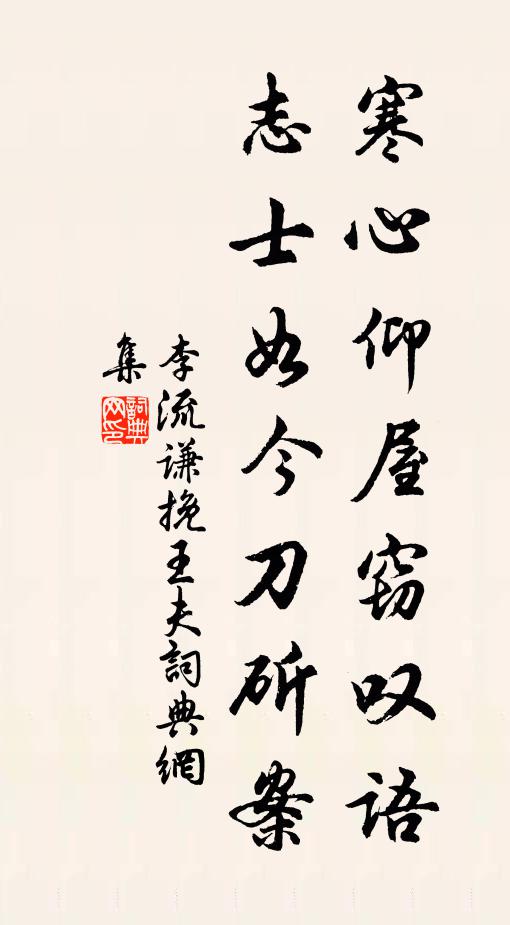 寒心仰屋窃叹语
志士如今刀斫案
李流谦挽王夫詞典網
集
詞典网印